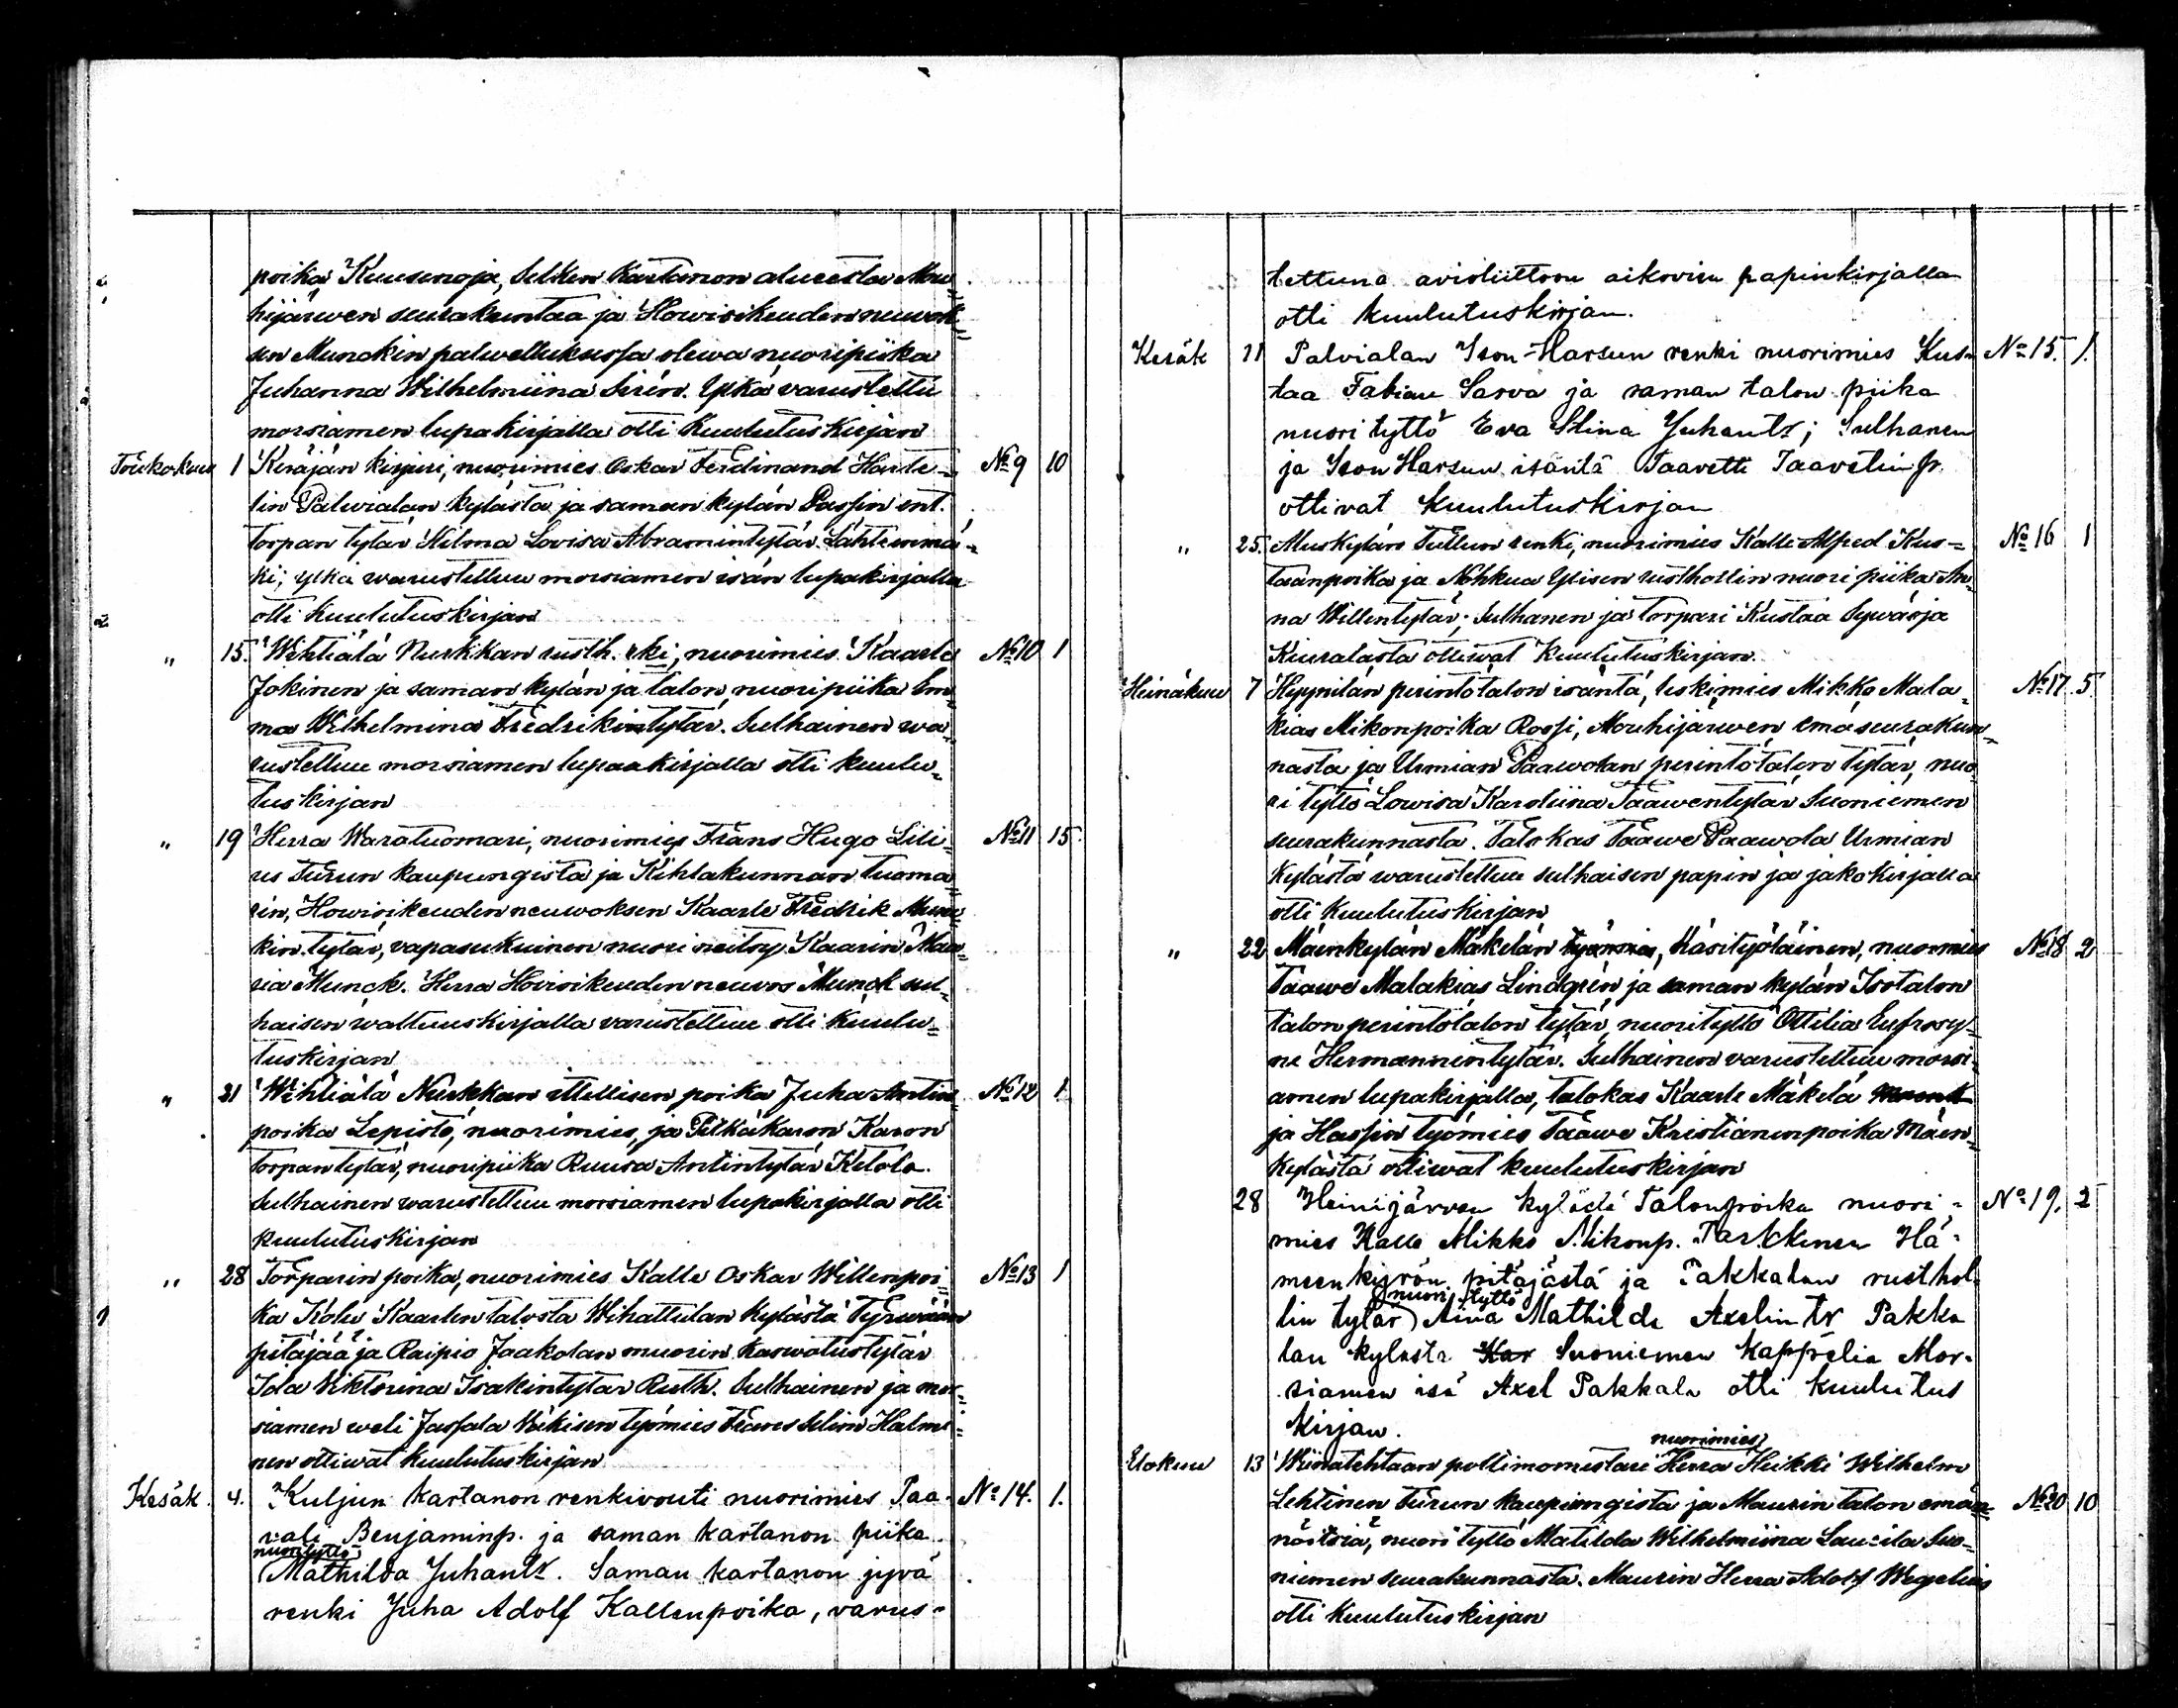 poika Kuusenoja, Selken Kartanon alueesta Mou
hijärwen seurakuntaa ja Howioikeuden neuwok
sen Munckin palwelluksessa olewa nuoripiika
Juhanna Wilhelmiina Sirén. Ylkä varustettu
morsiamen lupakirjalla otti Kuulutuskirjan
Toukokuu 1 Keräjän kirjuri, nuorimies Oskar Ferdinand Harde- No 9 10
lin Palwialan kylästä ja saman kylän Passin ent.
torpan tytär Hilma Lovisa Abramintytär Lähteenmä-
ki; ylkä warustettuu morsiamen isän lupakirjalla
otti kuulutuskirjan
" 15. Wihtiälä Nurkkan rusth. rki, nuorimies Kaarle No 10 1
Jokinen ja saman kylän ja talon, nuoripiika Em
ma Wilhelmina Fredrikintytär. Sulhainen wa
rustettuu morsiamen lupaakirjalla otti kuulu-
tuskirjan
" 19 Herra Waratuomari, nuorimies Frans Hugo Lili- No 11 15
us Turun kaupungista ja Kihlakunnan tuoma
rin, Howioikeuden neuwoksen Kaarle Fredrik Mun
kin tytär, vapasukuinen nuori neitsy Kaarin Ma-
ria Munck. Herra Hovioikeuden neuvos Munck sul-
haisen waltuuskirjalla varustettuu otti Kuulu-
tuskirjan
" 21 Wihtiälä Nurkkan itellisen poika Juha Antin No 12 1
poika Lepistö, nuorimies, ja Pitkäkaron Karon
torpan tytär, nuoripiika Ruusa Antintytär Ketola.
Sulhainen warustettuu morsiamen lupakirjalla otti
kuulutuskirjan
" 28 Torparin poika, nuorimies Kalle Oskar Willenpoi- No 13 1
ka Kolu Kaarlentalosta Wihattulan kylästä Tyrwään
pitäjää ja Raipio Jaakolan muorin kaswatustytär
Ida Viktorina Isakintytär Ruth. Sulhainen ja mor-
siamen weli Jassala Wäkisen työmies Frans Selim Halmi-
nen ottiwat kuulutuskirjan
Kesäk. 4. Kuljun kartanon renkivouti nuorimies Paa- No 14. 1.
vali Benjaminp. ja saman kartanon piika
nuorityttö
Mathilda Juhantr. Saman kartanon jyvä
renki Juha Adolf Kallenpoika, varus-
tettuna avioliittoon aikovien papinkirjalla
otti kuulutuskirjan.
Kesäk 11 Palvialan Ison-Harsun renki nuorimies Kus- No 15. 1.
taa Fabian Sarva ja saman talon piika
nuorityttö Eva Stina Juhantr; Sulhanen
ja Ison Harsun isäntä Taavetti Taavetinp.
ottivat kuulutuskirjan
" 25. Muskylän Tullun renki, nuorimies Kalle Alfred Kus- No 16 1
taanpoika ja Nohkua Ylisen rusthollin nuori piika An-
na Willentytär; Sulhanen ja torpari Kustaa Sywäoja
Kiuralasta ottiwat Kuulutuskirjan.
Heinäkuu 7 Hyynilän perintötalon isäntä, leskimies Mikko Mala- No 17 5
kias Mikonpoika Rossi, Mouhijärwen emäseurakun-
nasta ja Urmian Paawolan perintötalon tytär, nuo
ri tyttö Lowisa Karoliina Taawentytär Suoniemen
seurakunnasta. Talokas Taawe Paawola Urmian
kylästä warustettuu sulhaisen papin ja jakokirjalla
otti kuulutuskirjan
" 22 Mäenkylän Mäkelän työmies, käsityöläinen, nuorimies No 18 2
Taawe Malakias Lindgrén ja saman kylän Isotalon
talon perintötalon tytär, nuorityttö Ottilia Eufrosy-
ne Hermannintytär. Sulhainen varustettuu morsi-
amen lupakirjalla, talokas Kaarle Mäkelä
ja Hassin työmies Taawe Kristianinpoika Mäen-
kylästä ottiwat kuulutuskirjan
28 Heinijärven kylästä Talonpoika nuori- No 19. 2
mies Kalle Mikko Mikonp. Tarkkinen Hä-
meenkyrön pitäjästä ja Pakkalan rusthol-
nuori tyttö
lin tytär Aina Mathilda Axelintr Pakka
lan kylästä Kar Suoniemen Kappelia Mor-
siamen isä Axel Pakkala otti kuulutus
kirjan.
nuorimies
Elokuu 13 Wiinatehtaan polttimomestari Herra Heikki Wilhelm
Lehtinen Turun kaupungista ja Maurin talon emän- No 20 10
nöitsiä, nuori tyttö Matilda Wilhelmiina Laurila Suo-
niemen seurakunnasta. Maurin Herra Adolf Wegelius
otti kuulutuskirjan